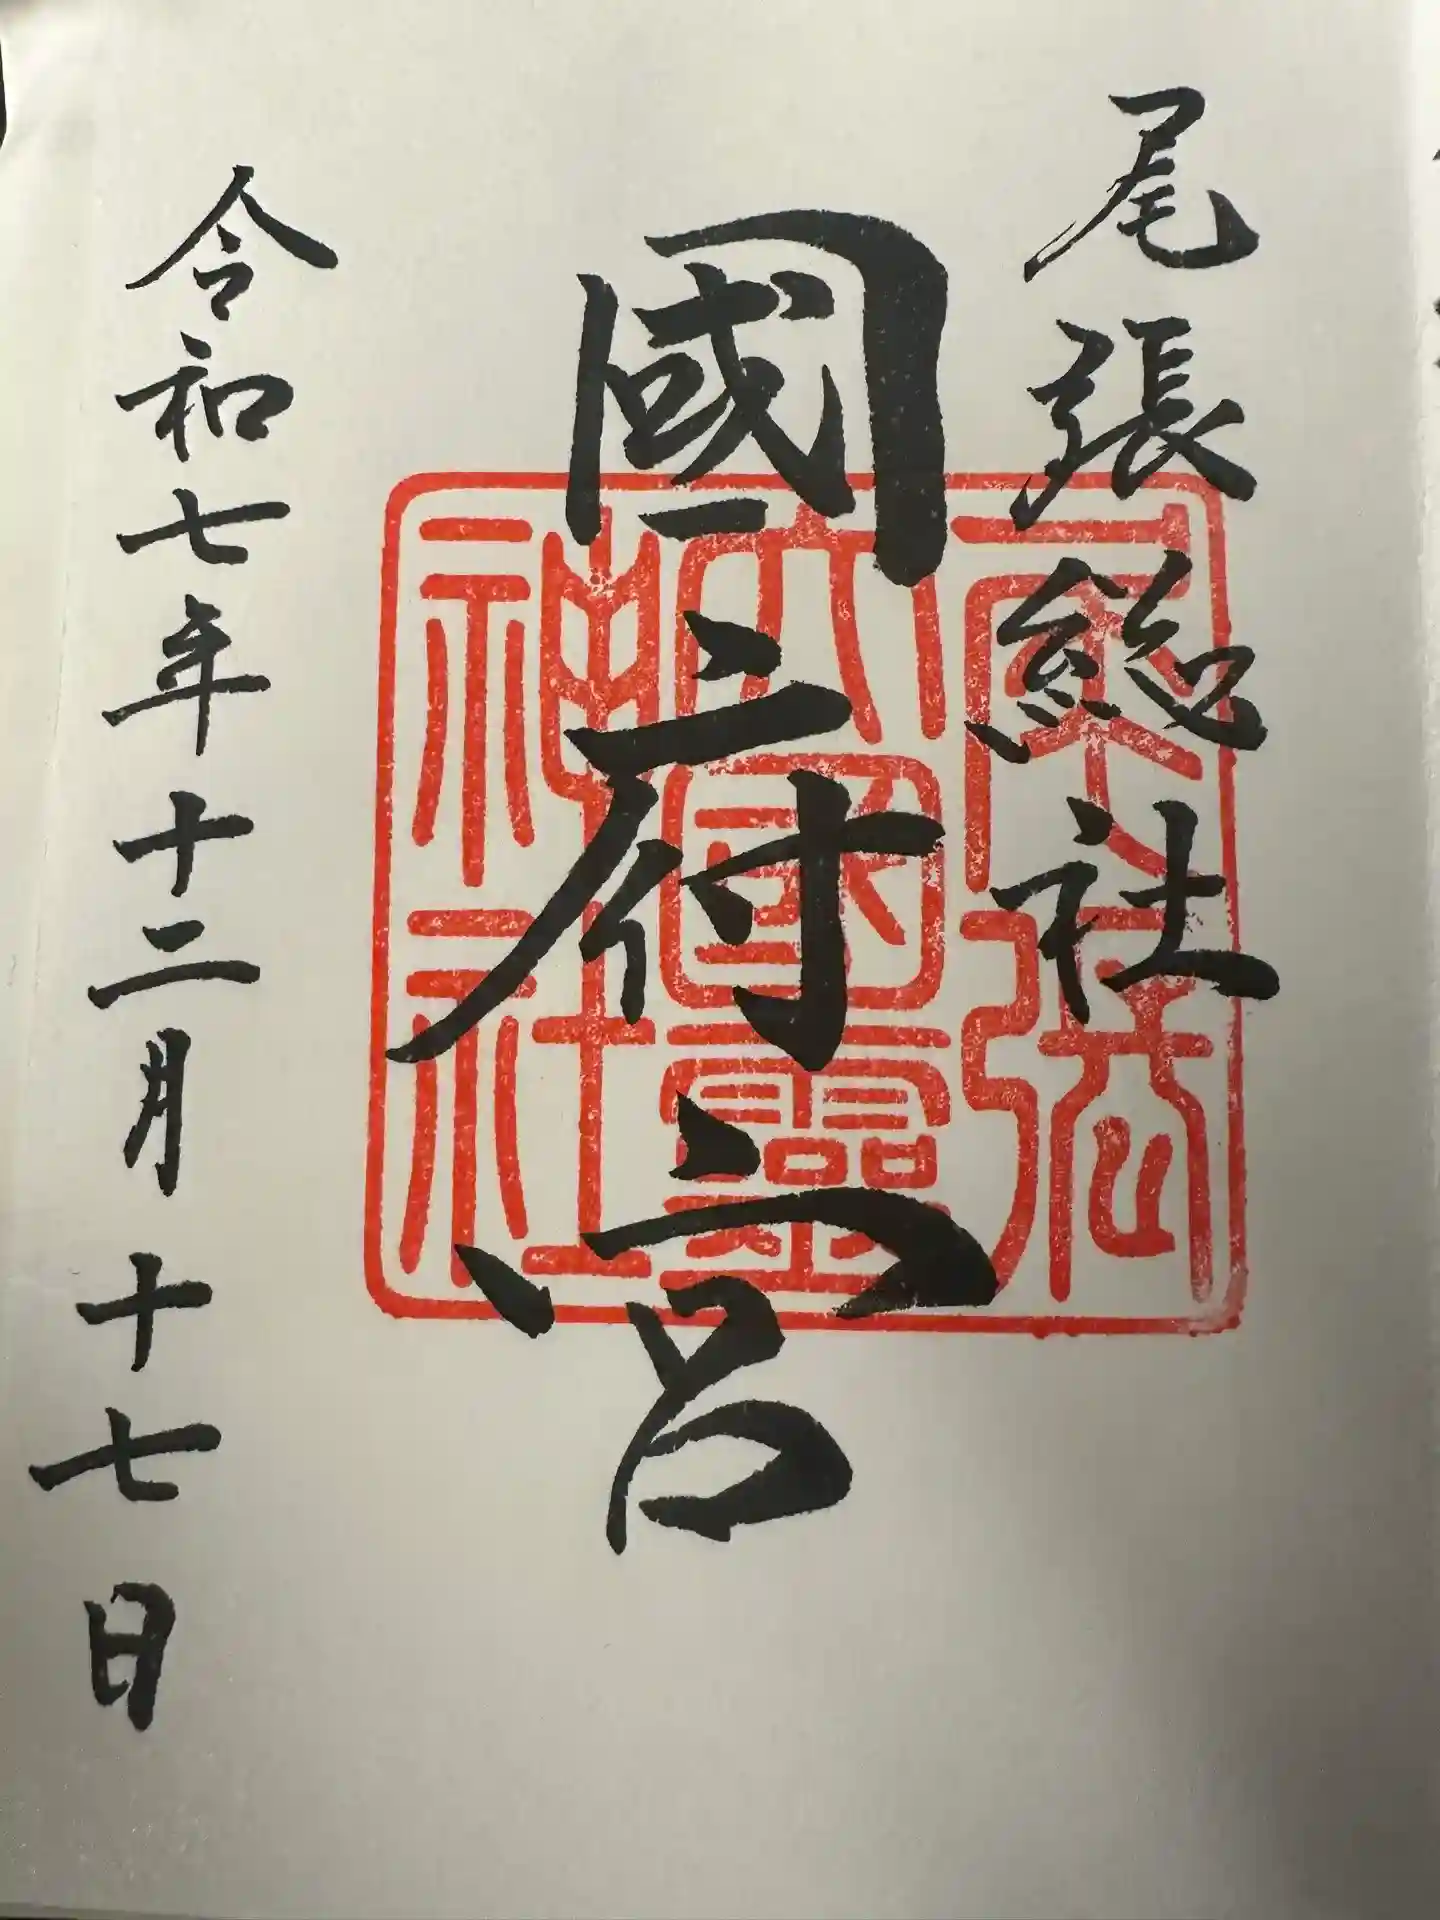 尾張総社
國府宮
令和七年十二月十七日
尾張
大国霊
神社